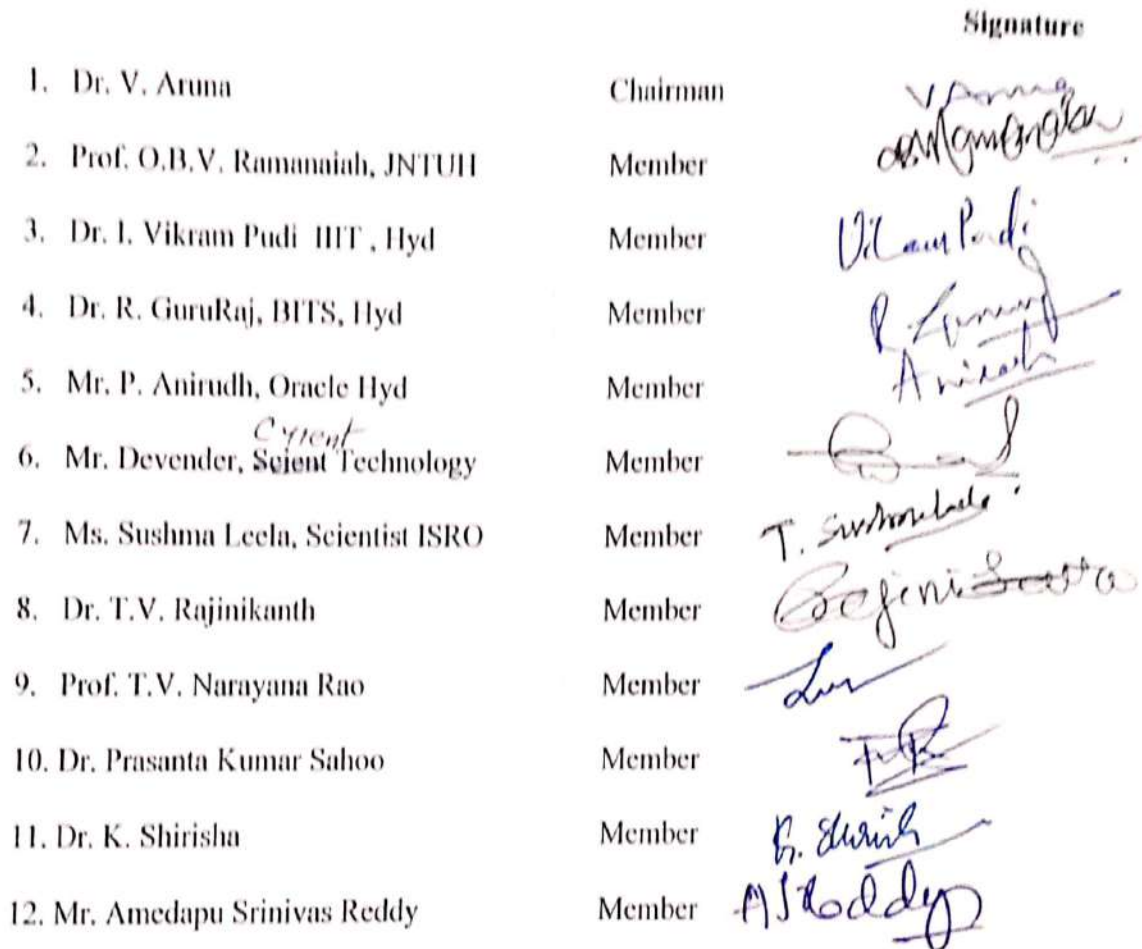 Signature
1. Dr. V. Aruna Chairman V Aruna
2. Prof. O.B.V. Ramanaiah, JNTUH Member
3. Dr. I. Vikram Pudi IIIT , Hyd Member Vikram Pudi
4. Dr. R. GuruRaj, BITS, Hyd Member
5. Mr. P. Anirudh, Oracle Hyd Member Anirudh
Cyient
6. Mr. Devender, Scient Technology Member
7. Ms. Sushma Leela, Scientist ISRO Member T. Sushma Leela
8. Dr. T.V. Rajinikanth Member
9. Prof. T.V. Narayana Rao Member
10. Dr. Prasanta Kumar Sahoo Member
11. Dr. K. Shirisha Member K. Shirish
12. Mr. Amedapu Srinivas Reddy Member ASReddy